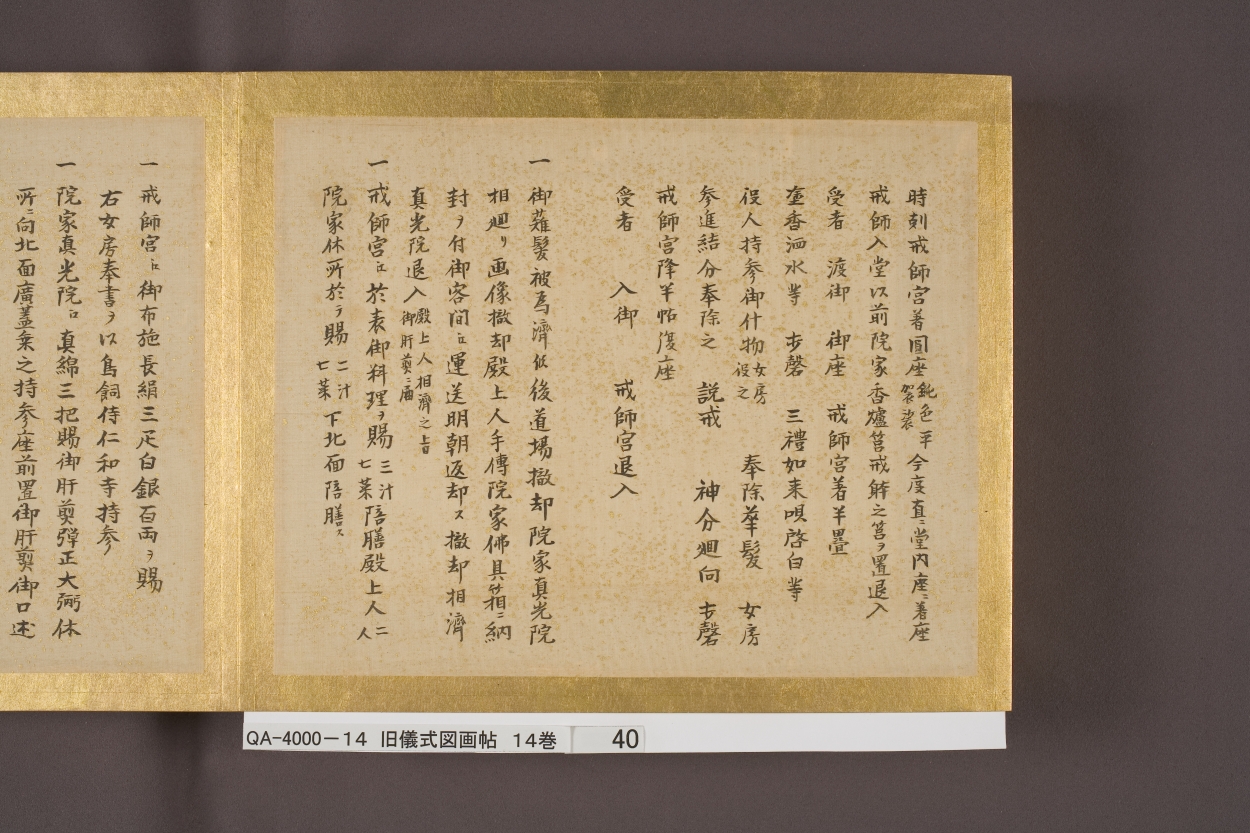 時刻戒師宮著圓座鈍色平袈裟今度直ニ堂内座ニ著座
戒師入堂以前院家香爐筥戒躰之筥ヲ置退入
受者　渡御　御座　戒師宮著半疊
塗香洒水等　打磬　三禮如来唄啓白等
役人持参御什物女房役之　奉除華髪　女房
参進結分奉除之　説戒　神分廻向　打磬
戒師宮降半帖復座
受者　入御　戒師宮退入
一　御薙髪被為濟候後道場撤却院家真光院
相廻リ画像撤却殿上人手傳院家佛具箱ニ納
封ヲ付御客間江運送明朝返却ス撤却相濟
真光院退入殿上人相濟之旨御肝煎ニ届
一　戒師宮江於表御料理ヲ賜三汁七菜陪膳殿上人二人
院家休所於テ賜二汁七菜下北面陪膳ス
一　戒師宮江御布施長絹三疋白銀百両ヲ賜
右女房奉書ヲ以鳥飼侍仁和寺持参
一　院家真光院江真綿三把賜御肝煎彈正大弼休
所ニ向北面廣蓋乗之持参座前置御肝煎御口述
QA-4000-14　旧儀式図画帖　14巻　40